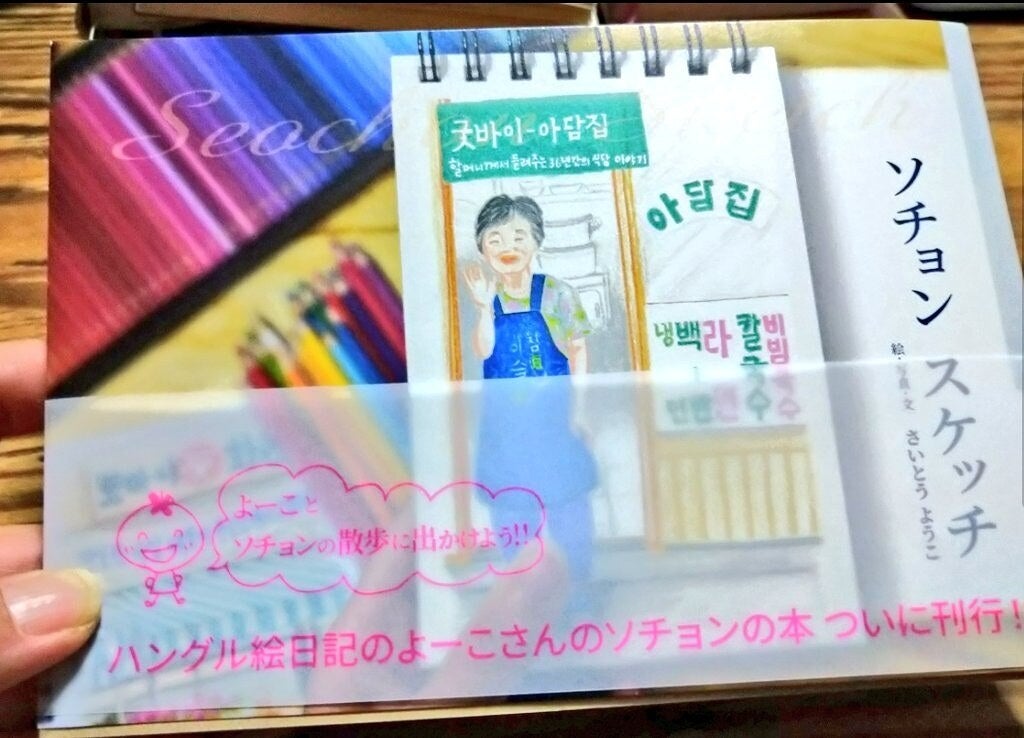 Seoch
굿바이-아담집
할머니께서 들려주는 36년간의 식당 이야기
아담집
냉
백
라
칼국수
비빔국수
ソチョン
スケッチ
絵・写真・文 さいとう ようこ
よーこと
ソチョンの散歩に出かけよう!!
ハングル絵日記のよーこさんのソチョンの本 ついに刊行!